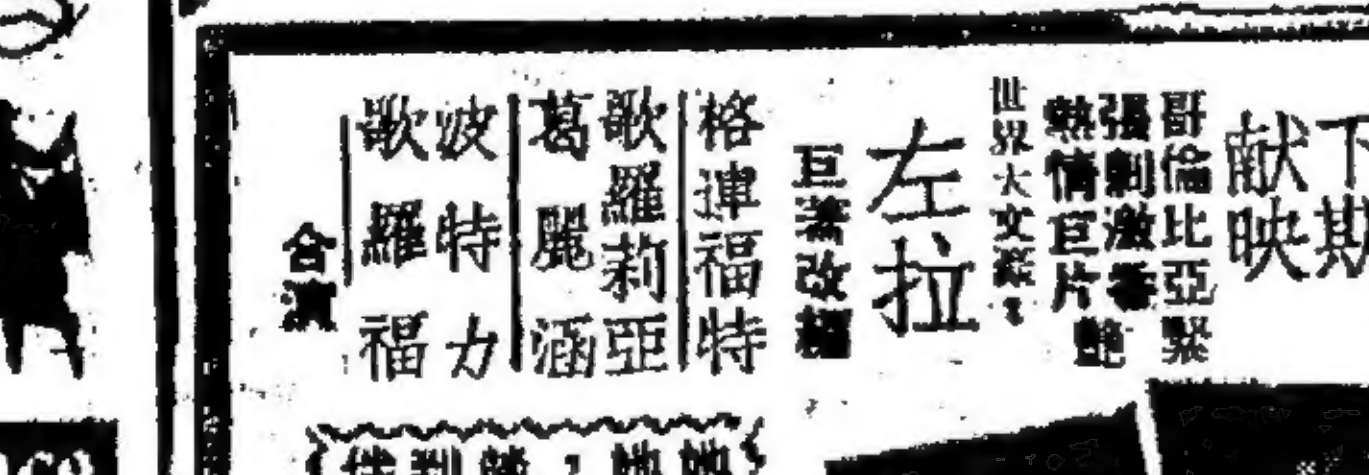 下期
献映
哥倫比亞緊
張刺激香艷
熱情巨片
世界大文豪：
左拉
巨著改編
格連福特
歌羅莉亞
葛麗涵
波特力
歌羅福
合演